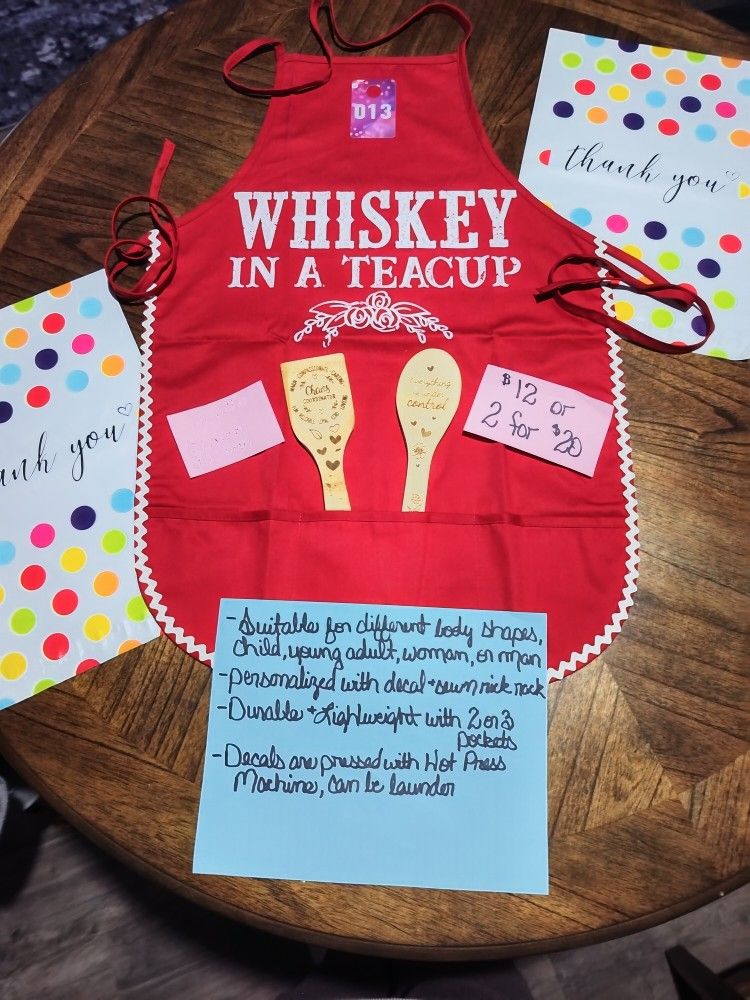 013
thank you
WHISKEY
IN A TEACUP
Chaos
COORDINATOR
everything
is under
control
$12 or
2 for $20
ank you
-Suitable for different body shapes,
child, young adult, woman, or man
-Personalized with decal + sewn rick rack
-Durable + Lightweight with 2 or 3
pockets
-Decals are pressed with Hot Press
Machine, can be launder